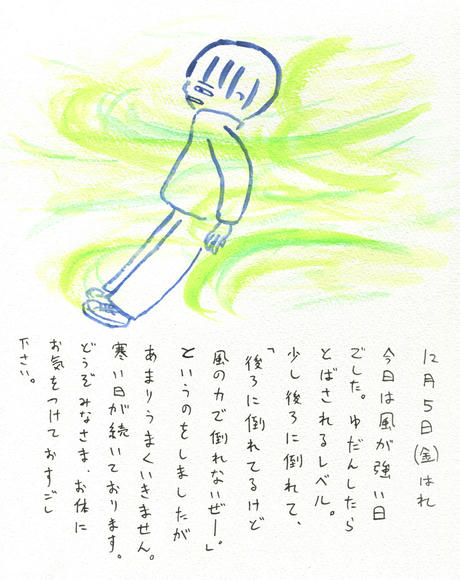 12月5日(金)はれ
今日は風が強い日
でした。ゆだんしたら
とばされるレベル。
少し後ろに倒れて、
「後ろに倒れてるけど
風の力で倒れないぜー」。
というのをしましたが
あまりうまくいきません。
寒い日が続いております。
どうぞみなさま、お体に
お気をつけておすごし
下さい。